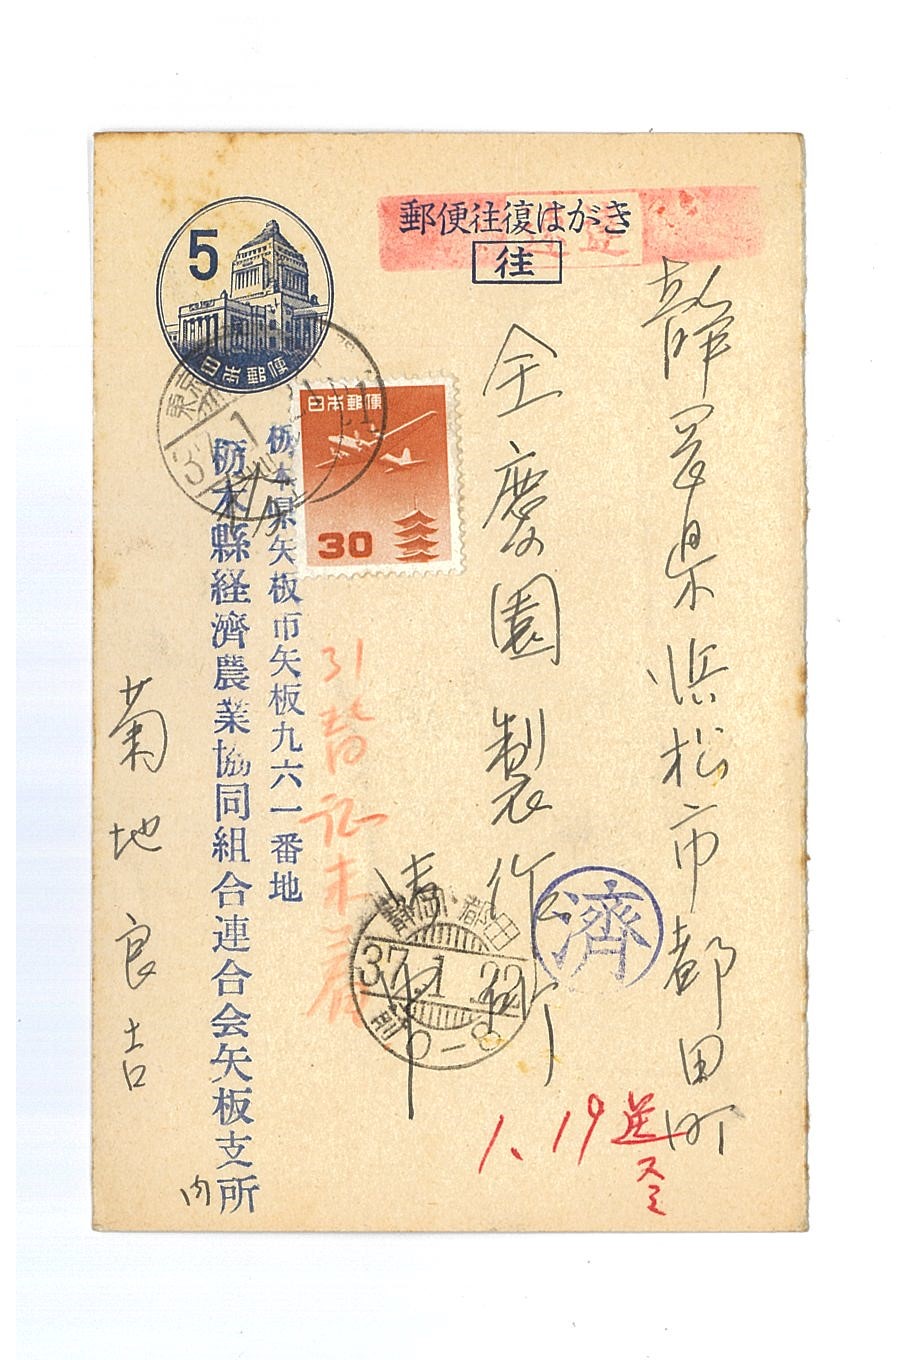 郵便往復はがき
往
5
日本郵便
日本郵便
30
静岡県浜松市都田町
全慶園製作所
御中
栃木県矢板市矢板九六一番地
栃木縣経済農業協同組合連合会矢板支所
内
菊地良吉
東京
37.1
静岡・都田
37.1.22
前
0-8
済
1、19送
スミ